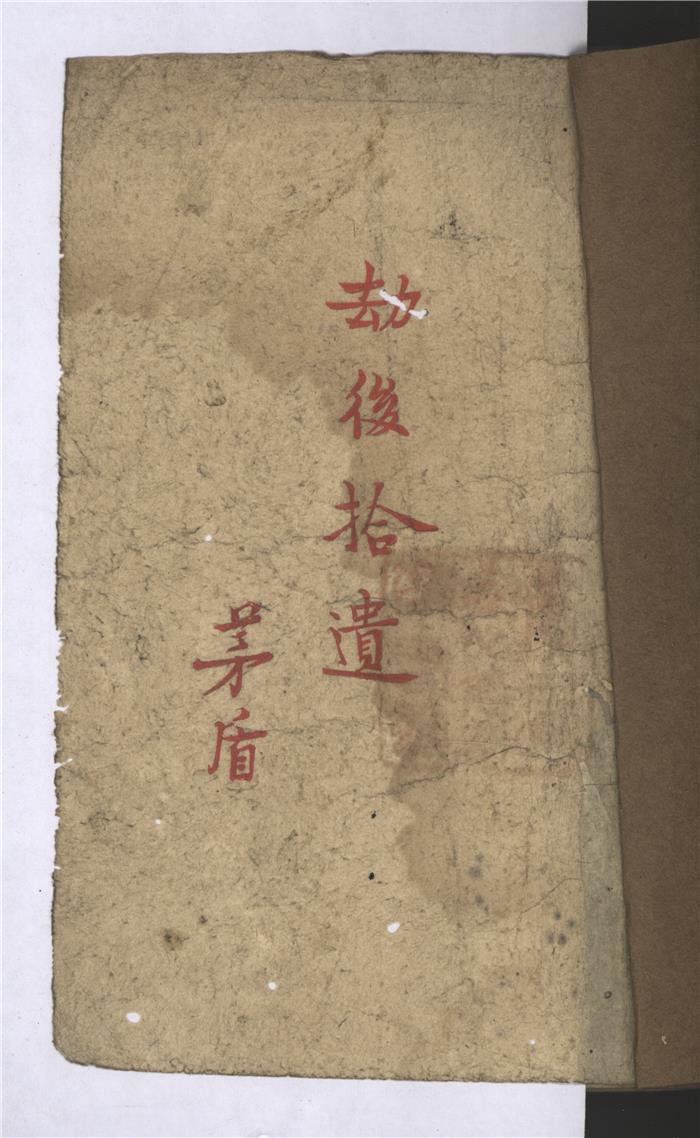 劫後拾遺
茅盾